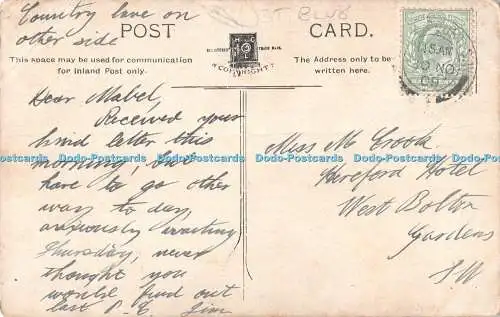 Country lane on
other side
ST BLVD
POST CARD.
This space may be used for communication
for Inland Post only.
The Address only to be
written here.
TRADE MARK
COPYRIGHT
Dear Mabel
Received your
kind letter this
morning, but
have to go other
way to day,
anxiously awaiting
Thursday, never
thought you
would find out
last P.C. Jim
Miss M Crook
Hereford Hotel
West Bolton
Gardens
SW
NO
Dodo-Postcards Dodo-Postcards Dodo-Postcards Dodo-Postcards Dodo-Postcards Dodo-Postcards